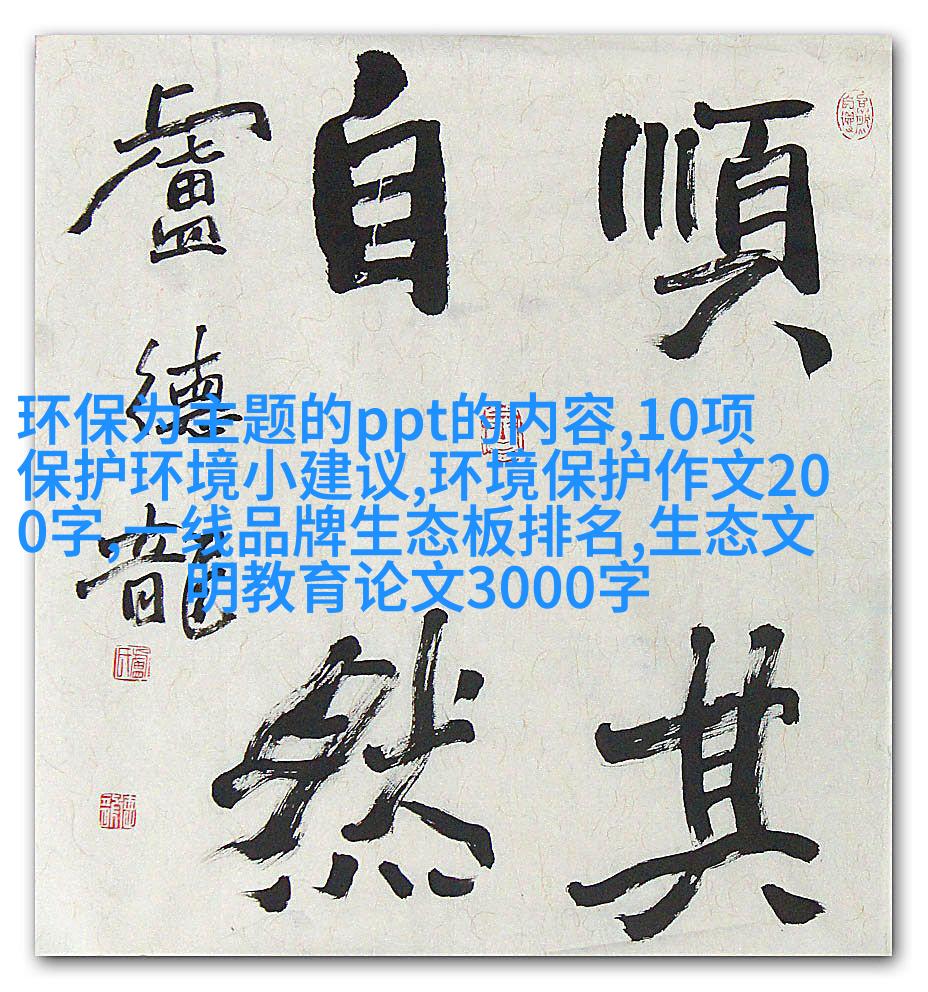 順其
自然
盧德龍
环保为主题的ppt的内容,10项
保护环境小建议,环境保护作文20
0字,一线品牌生态板排名,生态文
明教育论文3000字